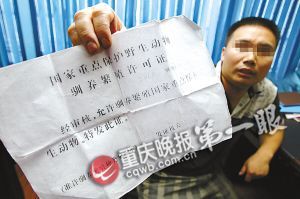 国家重点保护野生动物
驯养繁殖许可证
经审核,允许驯养繁殖国家重点保护
生动物,特发此证。
第一眼
重庆晚报
www.cqwb.com.cn